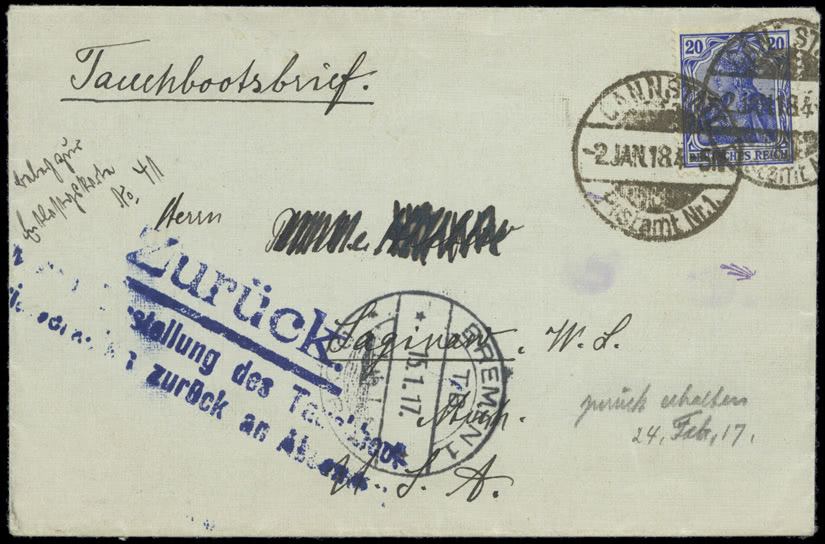 Tauchbootsbrief.
20 20
DEUTSCHES REICH
CANNSTATT
-2.JAN.18.4-5N
Postamt Nr.1.
No. 41
Herrn
Zurück.
stellung des Tauchboot
zurück an Absender
BREMEN 1
T.B.
15.1.17.
Saginaw, W. S.
Mich.
U. S. A.
zurück erhalten
24. Feb. 17.